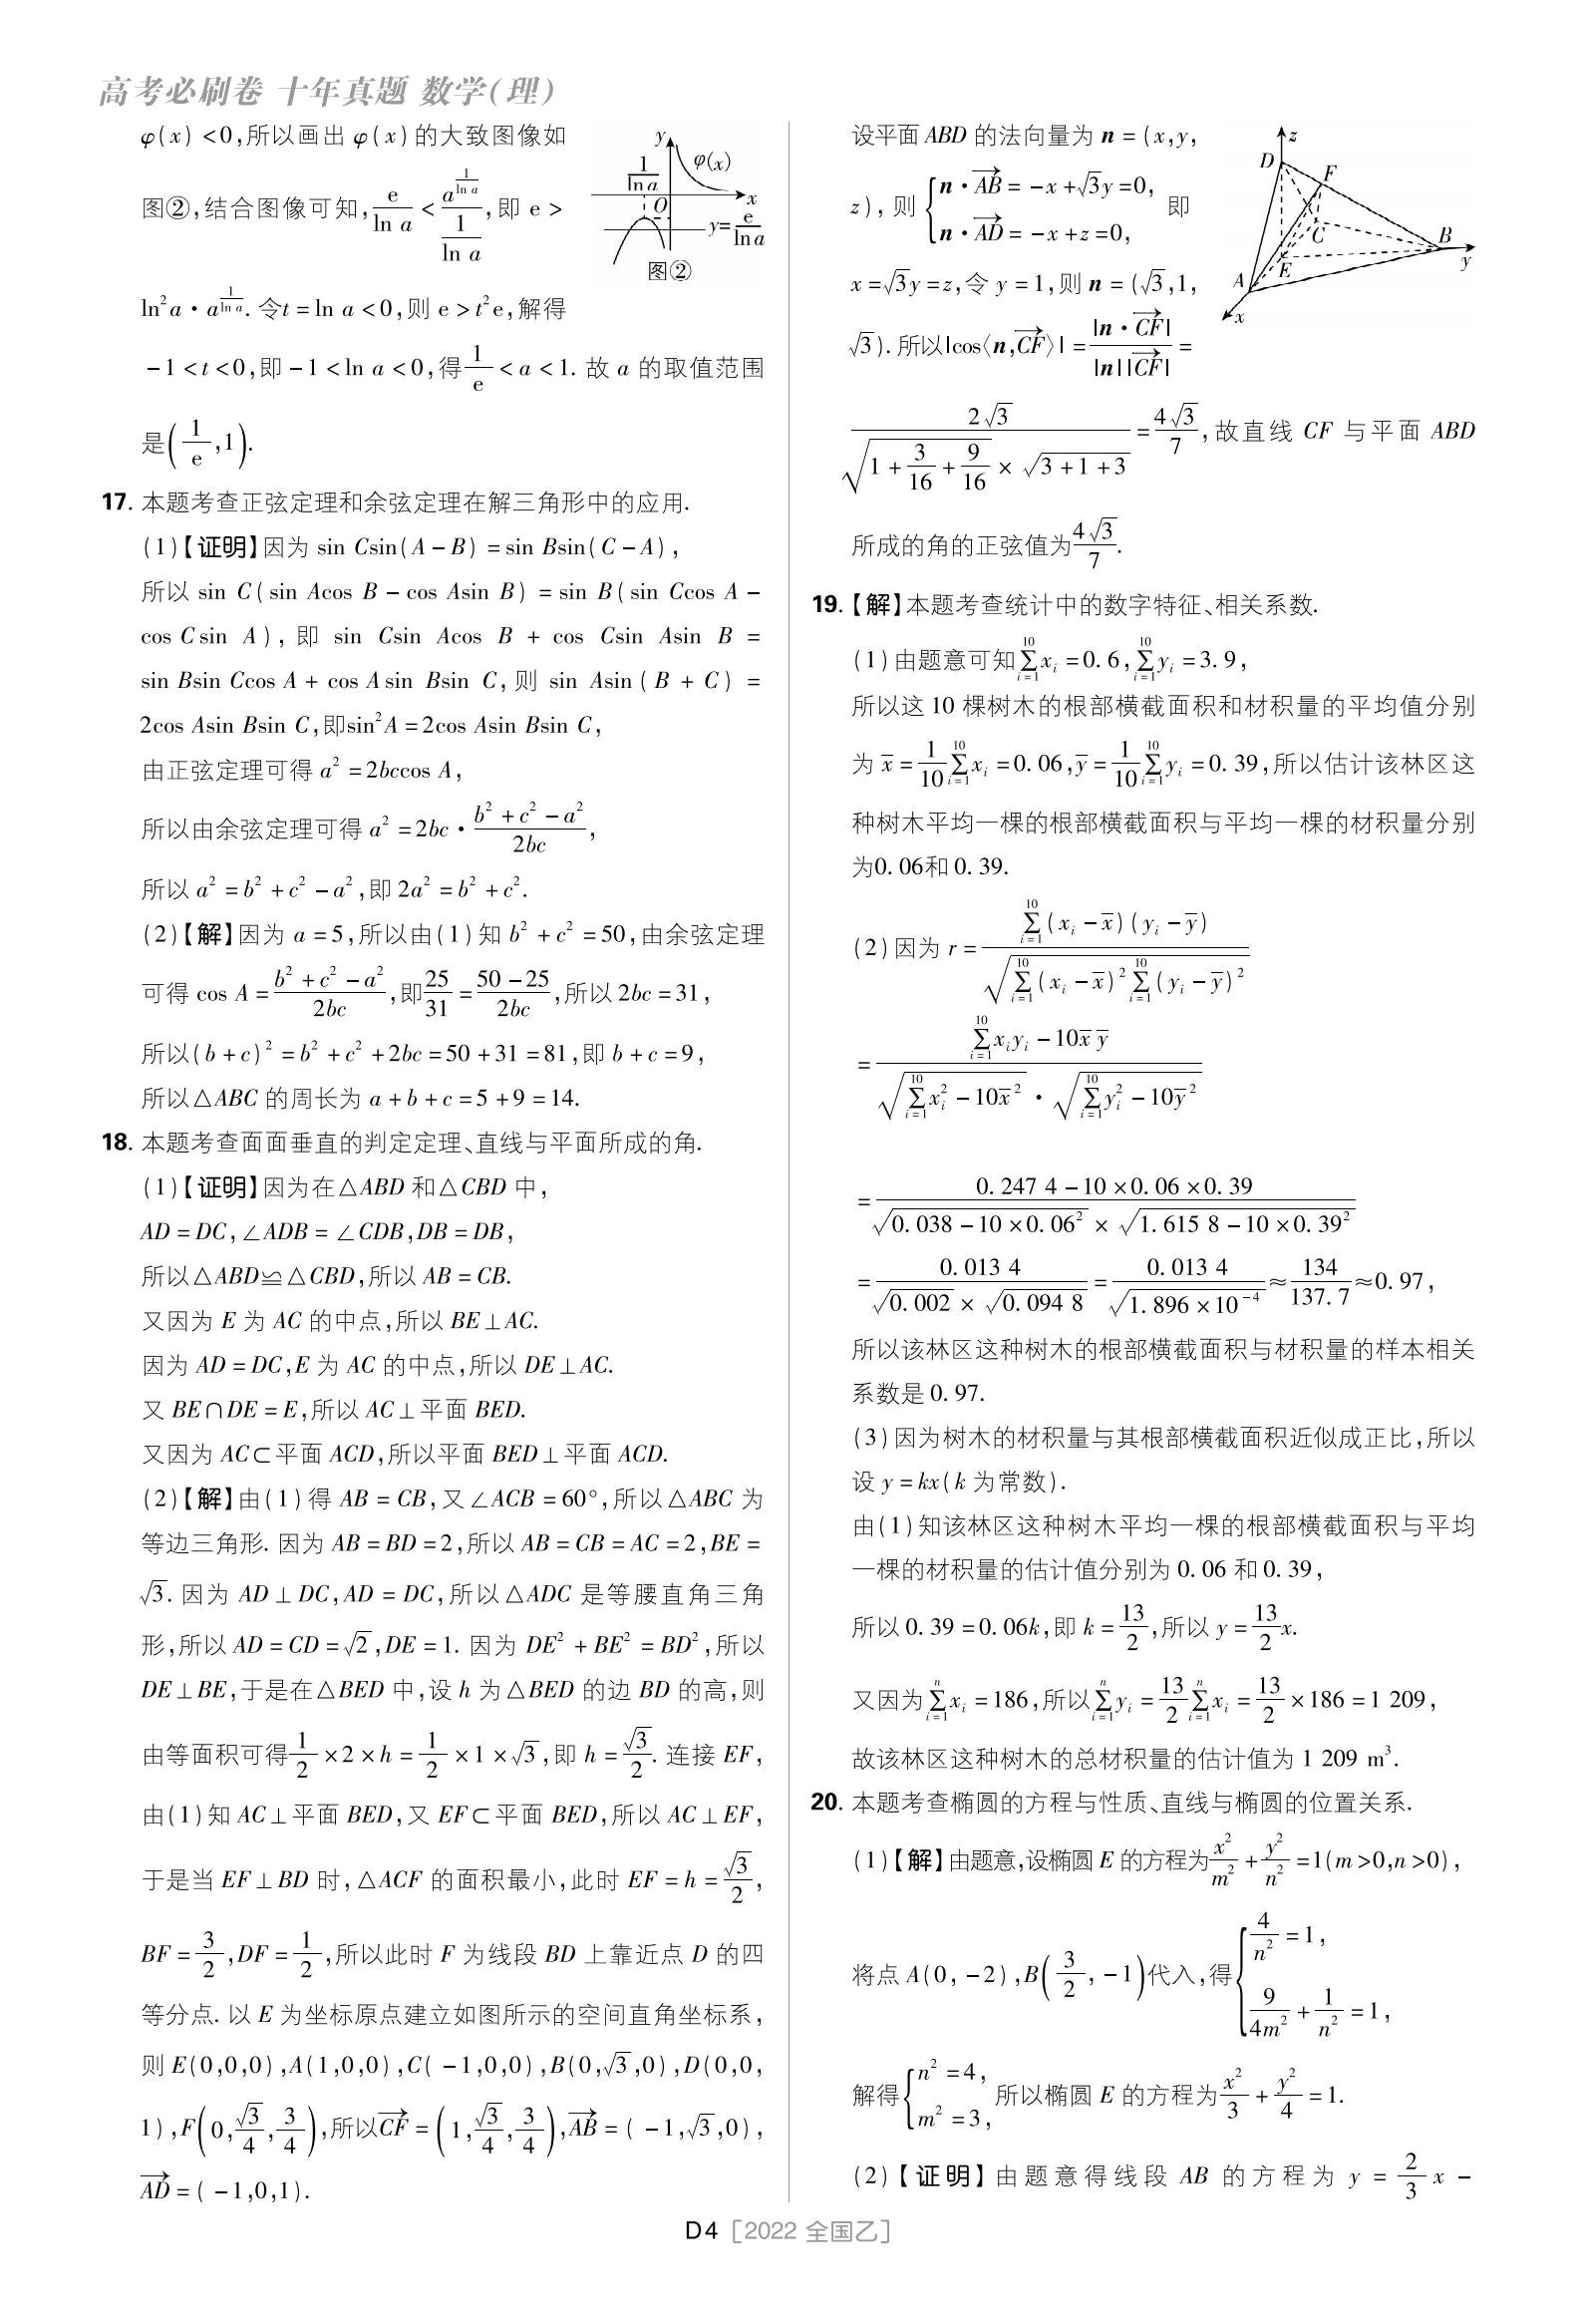 高考必刷卷 十年真题 数学(理)
φ(x)<0,所以画出 φ(x)的大致图像如
图②,结合图像可知,e/ln a < a^(1/ln a)/(1/ln a),即 e >
ln²a·a^(1/ln a). 令t=ln a<0,则 e>t²e,解得
-1<t<0,即-1<ln a<0,得1/e<a<1. 故 a 的取值范围
是(1/e,1).
y
1/ln a
φ(x)
O
x
y=e/ln a
图②
17. 本题考查正弦定理和余弦定理在解三角形中的应用.
(1)【证明】因为 sin Csin(A-B)=sin Bsin(C-A),
所以 sin C(sin Acos B-cos Asin B)=sin B(sin Ccos A-
cos Csin A),即 sin Csin Acos B + cos Csin Asin B =
sin Bsin Ccos A + cos Asin Bsin C,则 sin Asin(B+C)=
2cos Asin Bsin C,即sin²A=2cos Asin Bsin C,
由正弦定理可得 a²=2bccos A,
所以由余弦定理可得 a²=2bc·(b²+c²-a²)/2bc,
所以 a²=b²+c²-a²,即 2a²=b²+c².
(2)【解】因为 a=5,所以由(1)知 b²+c²=50,由余弦定理
可得 cos A=(b²+c²-a²)/2bc,即25/31=(50-25)/2bc,所以 2bc=31,
所以(b+c)²=b²+c²+2bc=50+31=81,即 b+c=9,
所以△ABC 的周长为 a+b+c=5+9=14.
18. 本题考查面面垂直的判定定理、直线与平面所成的角.
(1)【证明】因为在△ABD 和△CBD 中,
AD=DC,∠ADB=∠CDB,DB=DB,
所以△ABD≌△CBD,所以 AB=CB.
又因为 E 为 AC 的中点,所以 BE⊥AC.
因为 AD=DC,E 为 AC 的中点,所以 DE⊥AC.
又 BE∩DE=E,所以 AC⊥平面 BED.
又因为 AC⊂平面 ACD,所以平面 BED⊥平面 ACD.
(2)【解】由(1)得 AB=CB,又∠ACB=60°,所以△ABC 为
等边三角形. 因为 AB=BD=2,所以 AB=CB=AC=2,BE=
√3. 因为 AD⊥DC,AD=DC,所以△ADC 是等腰直角三角
形,所以 AD=CD=√2,DE=1. 因为 DE²+BE²=BD²,所以
DE⊥BE,于是在△BED 中,设 h 为△BED 的边 BD 的高,则
由等面积可得1/2×2×h=1/2×1×√3,即 h=√3/2. 连接 EF,
由(1)知 AC⊥平面 BED,又 EF⊂平面 BED,所以 AC⊥EF,
于是当 EF⊥BD 时,△ACF 的面积最小,此时 EF=h=√3/2,
BF=3/2,DF=1/2,所以此时 F 为线段 BD 上靠近点 D 的四
等分点. 以 E 为坐标原点建立如图所示的空间直角坐标系,
则 E(0,0,0),A(1,0,0),C(-1,0,0),B(0,√3,0),D(0,0,
1),F(0,√3/4,3/4),所以CF→=(1,√3/4,3/4),AB→=(-1,√3,0),
AD→=(-1,0,1).
设平面 ABD 的法向量为 n=(x,y,
z),则{n·AB→=-x+√3y=0, n·AD→=-x+z=0, 即
x=√3y=z,令 y=1,则 n=(√3,1,
√3). 所以|cos⟨n,CF→⟩|=|n·CF→|/(|n||CF→|)=
2√3/(√(1+3/16+9/16)×√(3+1+3))=4√3/7,故直线 CF 与平面 ABD
所成的角的正弦值为4√3/7.
z
D
F
C
B
y
E
A
x
19.【解】本题考查统计中的数字特征、相关系数.
(1)由题意可知∑_{i=1}^{10}x_i=0.6,∑_{i=1}^{10}y_i=3.9,
所以这 10 棵树木的根部横截面积和材积量的平均值分别
为 x̄=1/10∑_{i=1}^{10}x_i=0.06,ȳ=1/10∑_{i=1}^{10}y_i=0.39,所以估计该林区这
种树木平均一棵的根部横截面积与平均一棵的材积量分别
为0.06和 0.39.
(2)因为 r=∑_{i=1}^{10}(x_i-x̄)(y_i-ȳ)/√(∑_{i=1}^{10}(x_i-x̄)²∑_{i=1}^{10}(y_i-ȳ)²)
=(∑_{i=1}^{10}x_iy_i-10x̄ ȳ)/(√(∑_{i=1}^{10}x_i²-10x̄²)·√(∑_{i=1}^{10}y_i²-10ȳ²))
=(0.247 4-10×0.06×0.39)/(√(0.038-10×0.06²)×√(1.615 8-10×0.39²))
=0.013 4/(√0.002×√0.094 8)=0.013 4/√(1.896×10⁻⁴)≈134/137.7≈0.97,
所以该林区这种树木的根部横截面积与材积量的样本相关
系数是 0.97.
(3)因为树木的材积量与其根部横截面积近似成正比,所以
设 y=kx(k 为常数).
由(1)知该林区这种树木平均一棵的根部横截面积与平均
一棵的材积量的估计值分别为 0.06 和 0.39,
所以 0.39=0.06k,即 k=13/2,所以 y=13/2x.
又因为∑_{i=1}^{n}x_i=186,所以∑_{i=1}^{n}y_i=13/2∑_{i=1}^{n}x_i=13/2×186=1 209,
故该林区这种树木的总材积量的估计值为 1 209 m³.
20. 本题考查椭圆的方程与性质、直线与椭圆的位置关系.
(1)【解】由题意,设椭圆 E 的方程为x²/m²+y²/n²=1(m>0,n>0),
将点 A(0,-2),B(3/2,-1)代入,得{4/n²=1, 9/4m²+1/n²=1,
解得{n²=4, m²=3, 所以椭圆 E 的方程为x²/3+y²/4=1.
(2)【证明】由题意得线段 AB 的方程为 y=2/3x-
D4 [2022 全国乙]